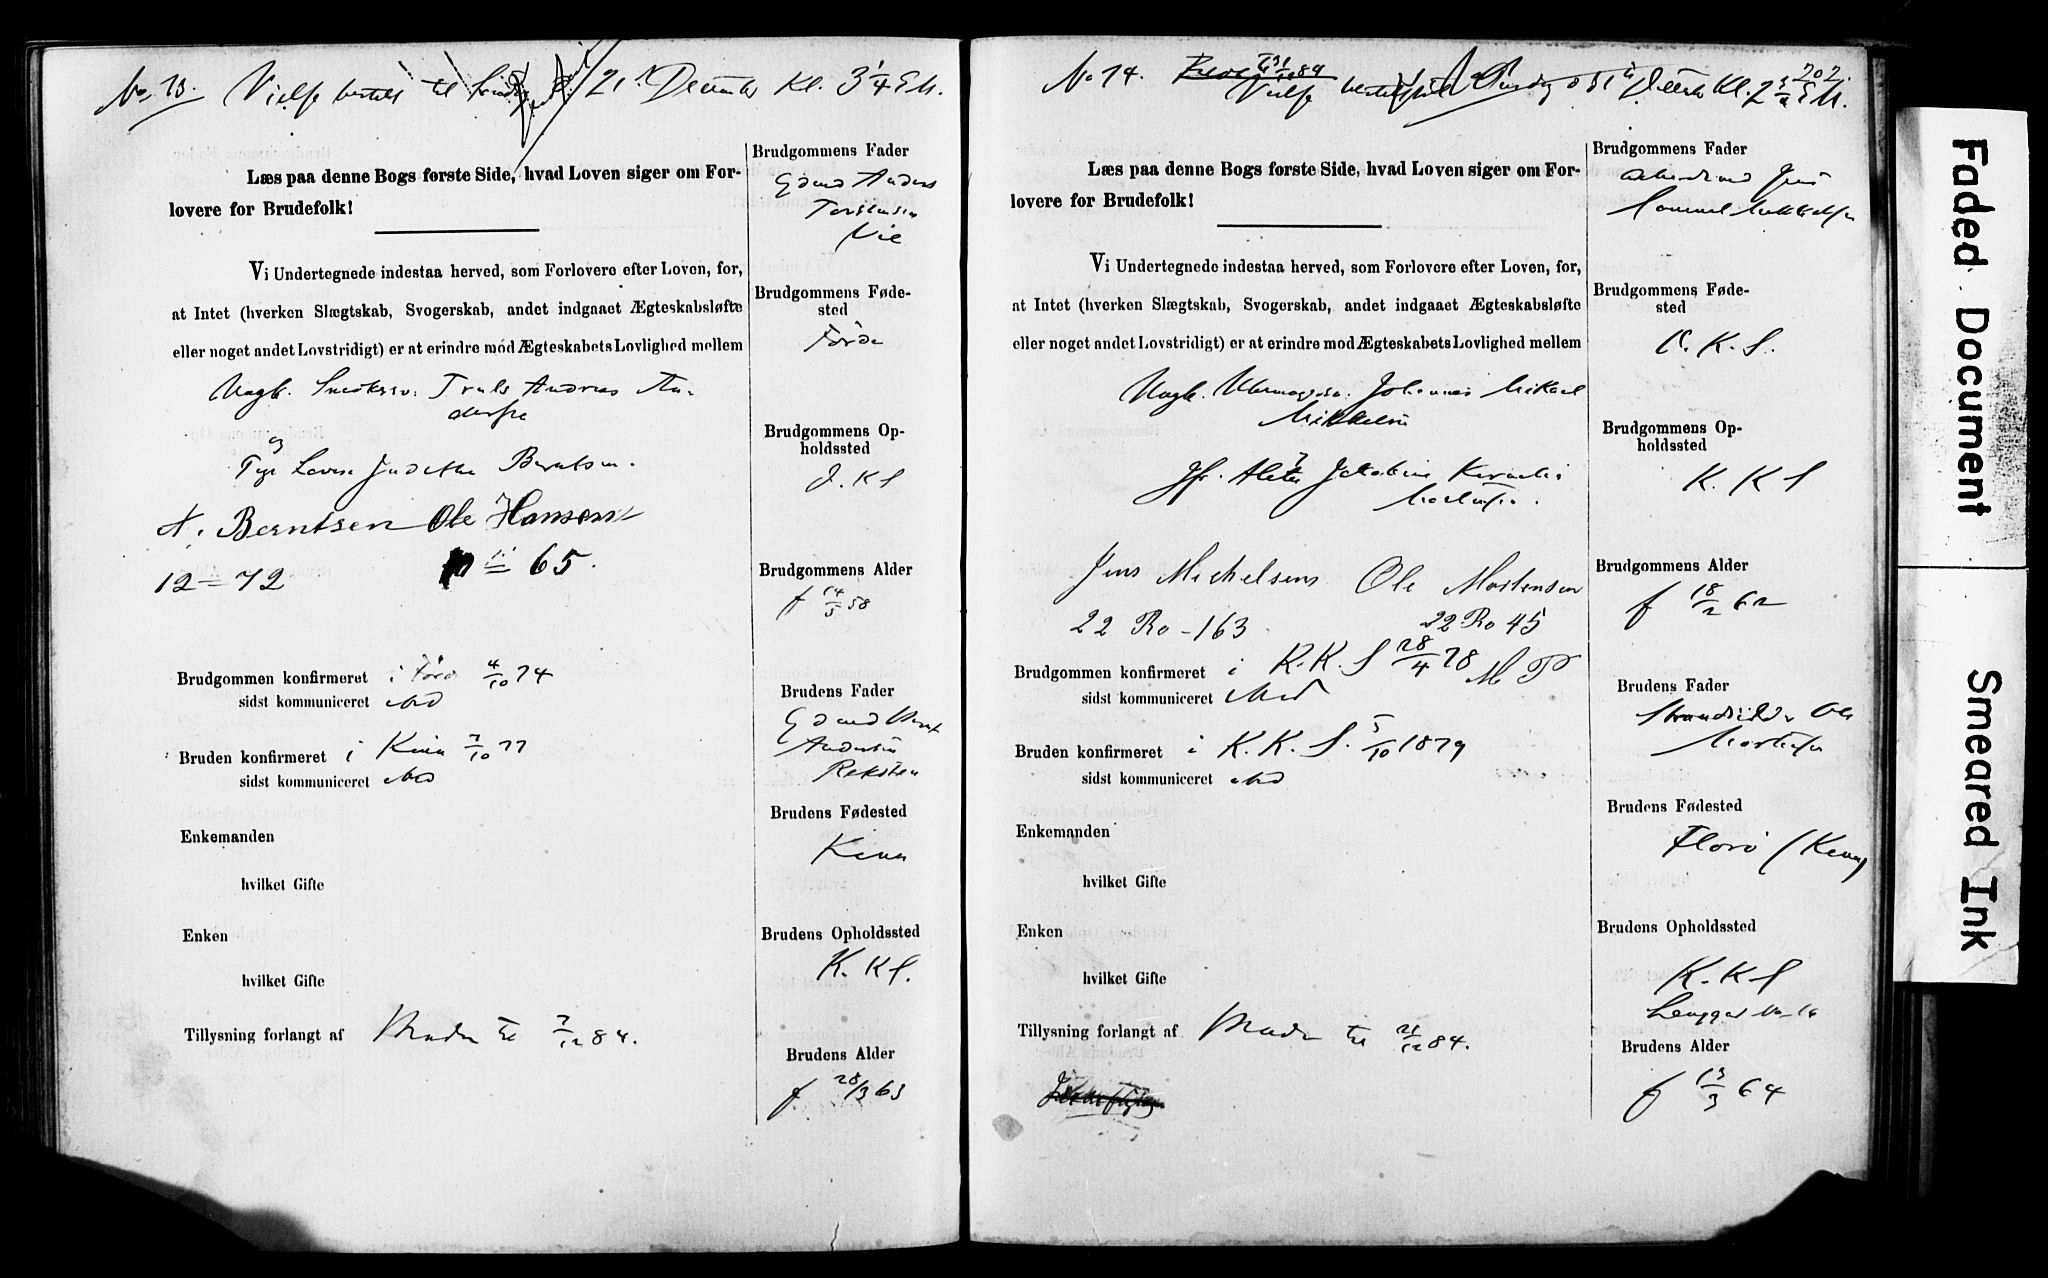 No. 13. Vielse bestilt til Søndag d. 21. December Kl. 3 1/4 EM.
Læs paa denne Bogs første Side, hvad Loven siger om For-
lovere for Brudefolk!
Vi Undertegnede indestaa herved, som Forlovere efter Loven, for,
at Intet (hverken Slægtskab, Svogerskab, andet indgaaet Ægteskabsløfte
eller noget andet Lovstridigt) er at erindre mod Ægteskabets Lovlighed mellem
Ungk. Truls Andreas An-
dersen
og
Pige Lovise Judithe Berntsen.
A. Berntsen Ole Hansen
12 = 72
10 = 65.
Brudgommen konfirmeret i Förde 4/10 74
sidst kommuniceret
Bruden konfirmeret i Kinn 7/10 77
sidst kommuniceret
Enkemanden
hvilket Gifte
Enken
hvilket Gifte
Tillysning forlangt af til 7/12 84.
Brudgommens Fader
Gdmd Anders
Torstensen
Vie
Brudgommens Føde-
sted
Förde
Brudgommens Op-
holdssted
J. K S
Brudgommens Alder
f 14/5 58
Brudens Fader
Gdmd
Andersen
Reksten
Brudens Fødested
Kinn
Brudens Opholdssted
K. K S.
Brudens Alder
f 28/3 63
No 14.
202.
Vielse Kl. 2 3/4 EM.
Læs paa denne Bogs første Side, hvad Loven siger om For-
lovere for Brudefolk!
Vi Undertegnede indestaa herved, som Forlovere efter Loven, for,
at Intet (hverken Slægtskab, Svogerskab, andet indgaaet Ægteskabsløfte
eller noget andet Lovstridigt) er at erindre mod Ægteskabets Lovlighed mellem
Ungk. Johannes Mikael
Mikkelsen
og
Jfr. Jakobine
Mortensen.
Jens Michelsens Ole Mortensen
22 Ro - 163
22 Ro 45
Brudgommen konfirmeret i K. K. S 28/4 78 M P
sidst kommuniceret
Bruden konfirmeret i K. K. S. 5/10 1879
sidst kommuniceret
Enkemanden
hvilket Gifte
Enken
hvilket Gifte
Tillysning forlangt af til 21/12 84.
Brudgommens Fader
Arbeidsmd Jens
Mikkelsen
Brudgommens Føde-
sted
K. K. S.
Brudgommens Op-
holdssted
K. K S
Brudgommens Alder
f 18/2 62
Brudens Fader
Strandsidder Ole
Mortensen
Brudens Fødested
Florö (Kinn)
Brudens Opholdssted
K. K. S
Brudens Alder
f 13/3 64
Faded Document
Smeared Ink